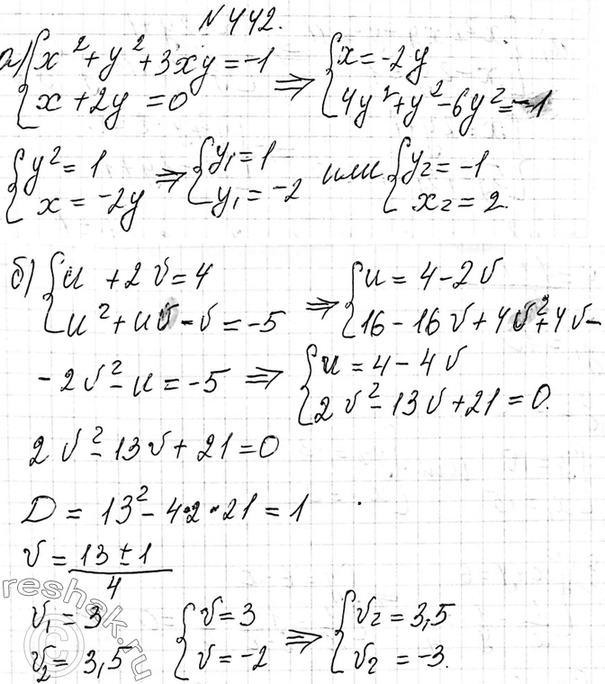 №442.
а) {x²+y²+3xy=-1 ⇒ {x=-2y
{x+2y=0 {4y²+y²-6y²=-1
{y²=1 ⇒ {y₁=1 или {y₂=-1
{x=-2y {y₁=-2 {x₂=2.
б) {u+2v=4 ⇒ {u=4-2v
{u²+uv-v=-5 {16-16v+4v²+4v-
-2v²-u=-5 ⇒ {u=4-4v
{2v²-13v+21=0.
2v²-13v+21=0
D=13²-4·2·21=1
v=(13±1)/4
v₁=3 {v=3 ⇒ {v₂=3,5
v₂=3,5 {v=-2 {v₂=-3.
reshak.ru